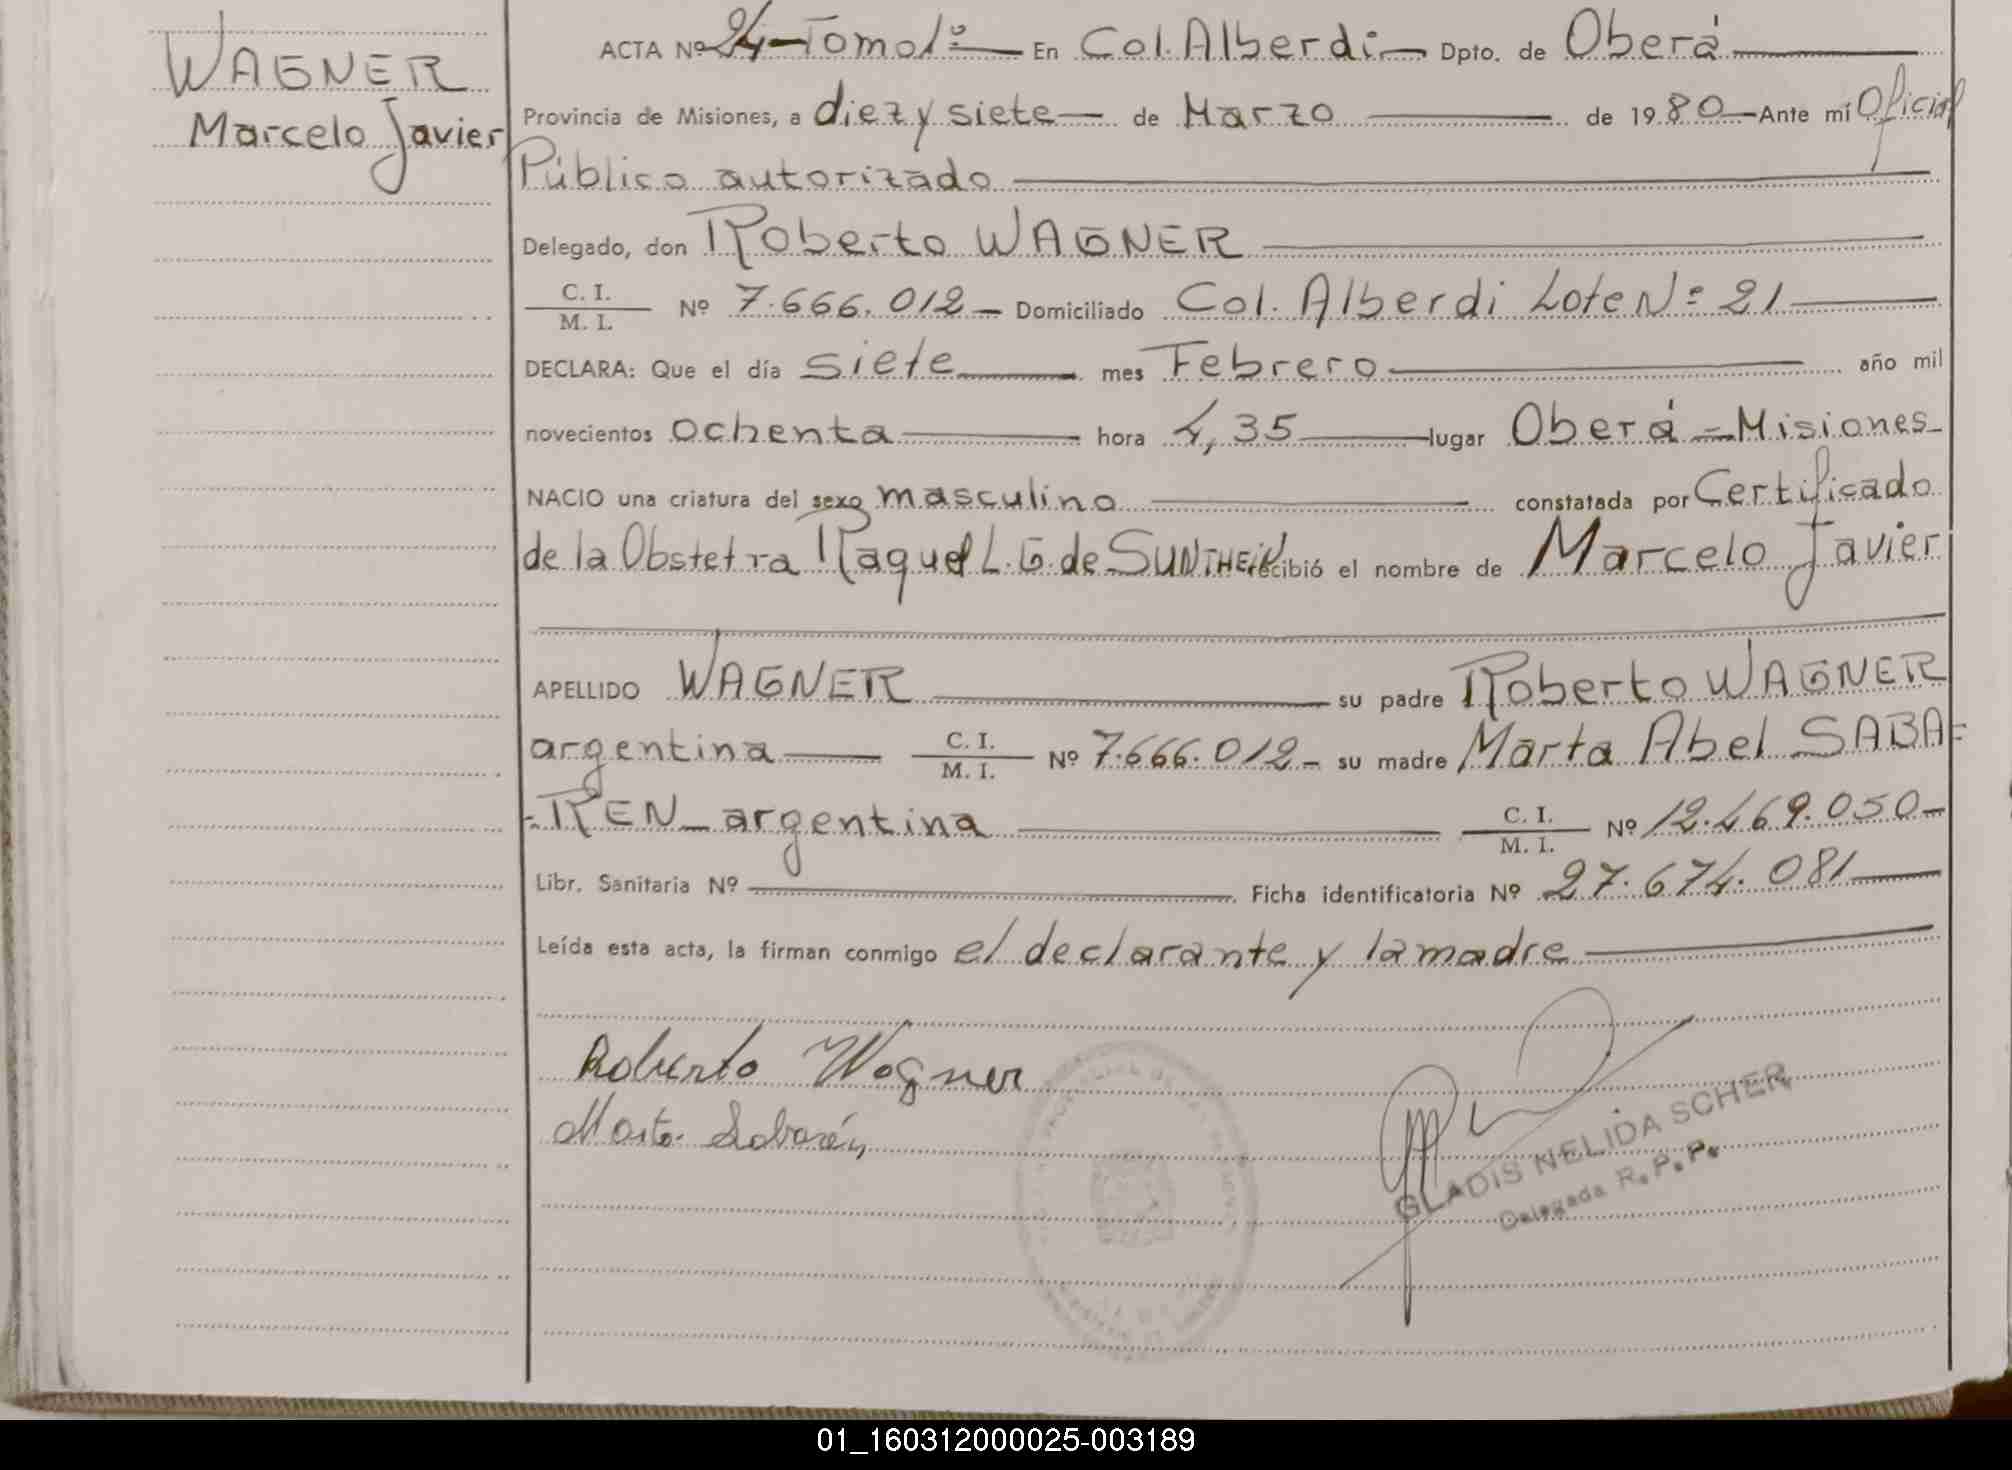 WAGNER
Marcelo Javier
ACTA Nº 24 - Tomo 1º En Col. Alberdi Dpto. de Oberá
Provincia de Misiones, a diez y siete de Marzo de 1980 Ante mí Oficial
Público autorizado
Delegado, don Roberto WAGNER
C. I.
M. I. Nº 7.666.012 Domiciliado Col. Alberdi Lote Nº 21
DECLARA: Que el día siete mes Febrero año mil
novecientos ochenta hora 4,35 lugar Oberá - Misiones
NACIO una criatura del sexo masculino constatada por Certificado
de la Obstetra Raquel L. G. de SUNTHEIN recibió el nombre de Marcelo Javier
APELLIDO WAGNER su padre Roberto WAGNER
argentina C. I.
M. I. Nº 7.666.012 - su madre Marta Abel SABA=
=REN argentina C. I.
M. I. Nº 12.469.050
Libr. Sanitaria Nº Ficha identificatoria Nº 27.674.081
Leída esta acta, la firman conmigo el declarante y la madre
Roberto Wagner
Marta Sabarén
GLADIS NELIDA SCHER
Delegada R. P. P.
01_160312000025-003189